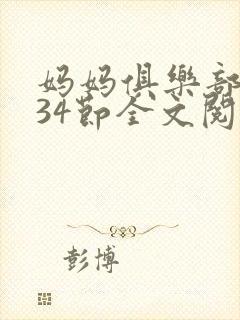 妈妈俱樂部
34節全文閱
彭博